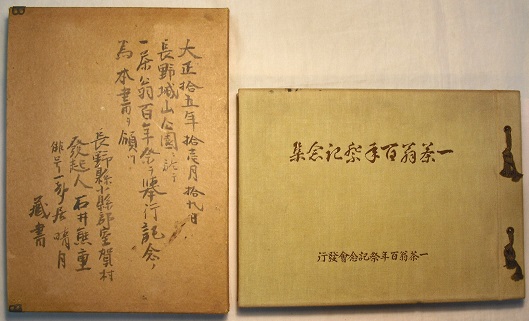 大正拾五年拾壱月拾九日
長野城山公園ニ於テ
一茶翁百年祭ヲ挙行記念ノ
為本書ヲ領ツ
長野縣小縣郡室賀村
發起人石井無重
俳号一夢居晴月
蔵書
一茶翁百年祭記念集
一茶翁百年祭記念會發行